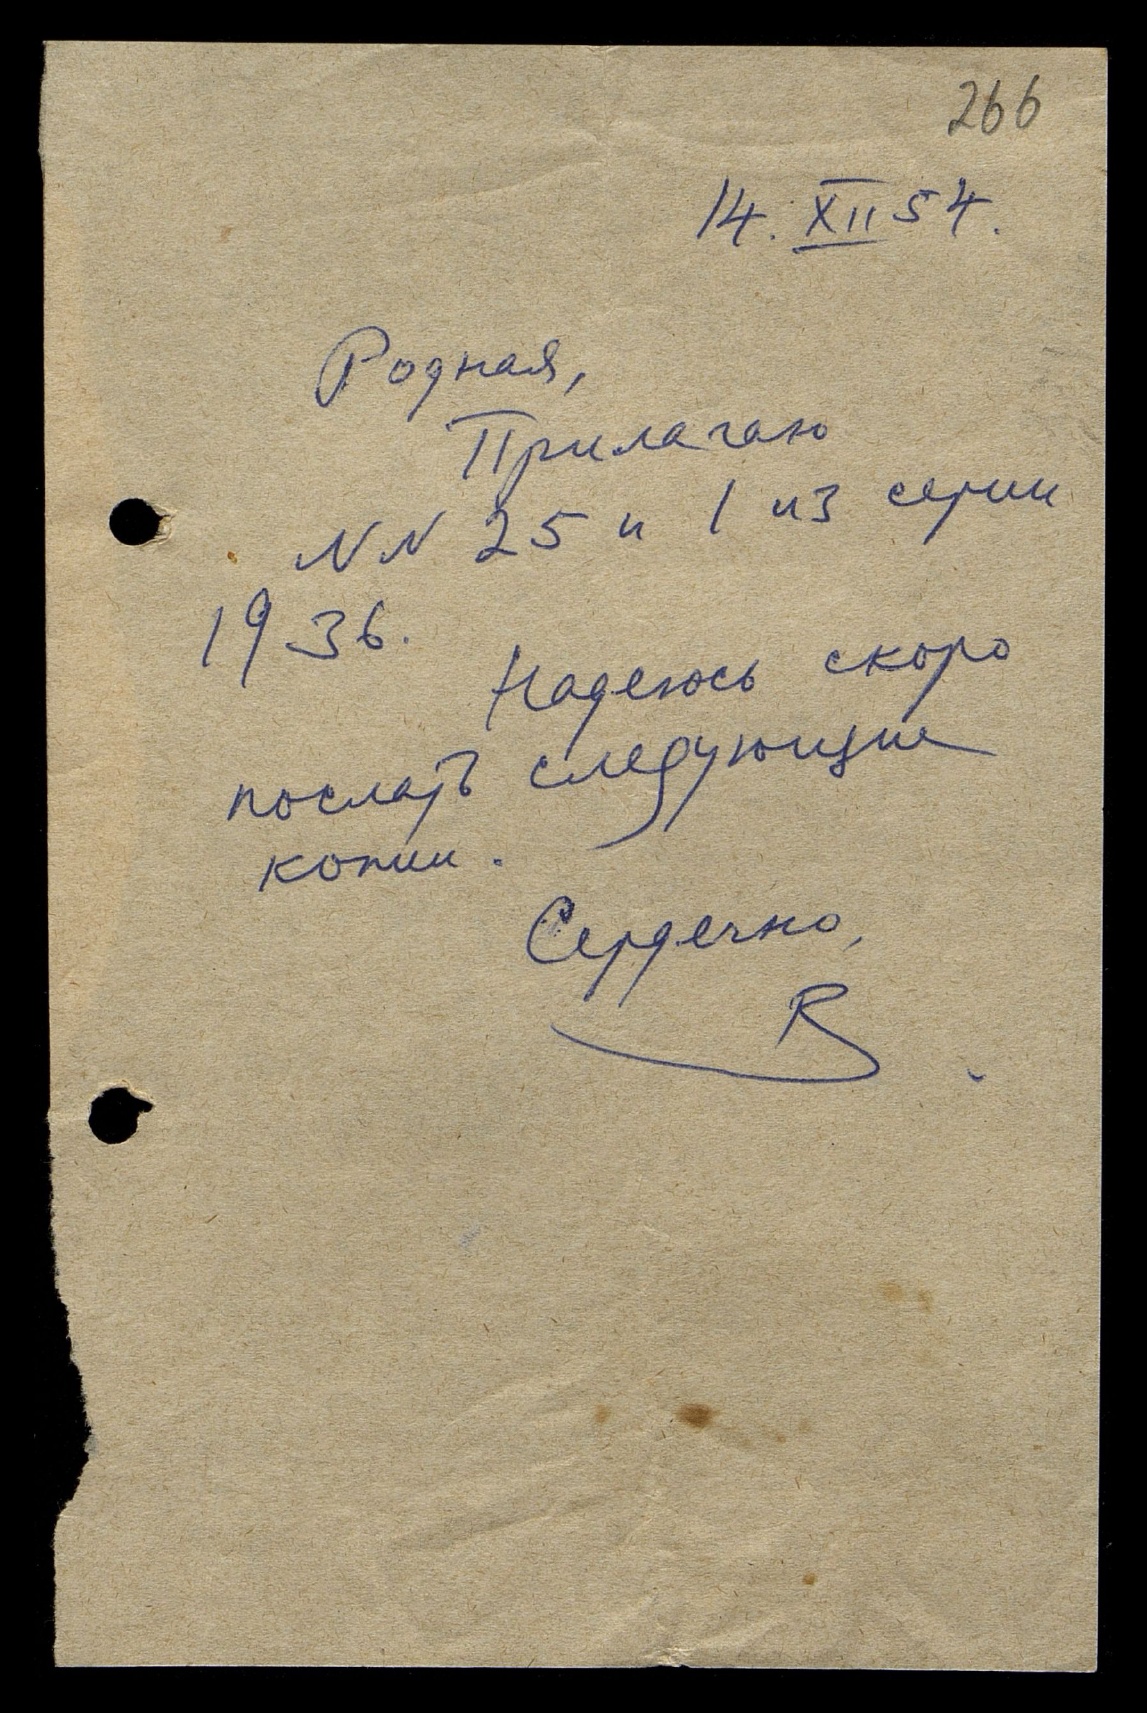 266
14. XII 54.
Родная,
Прилагаю
NN 25 и 1 из серии
1936.
Надеюсь скоро
послать следующие
копии.
Сердечно,
R